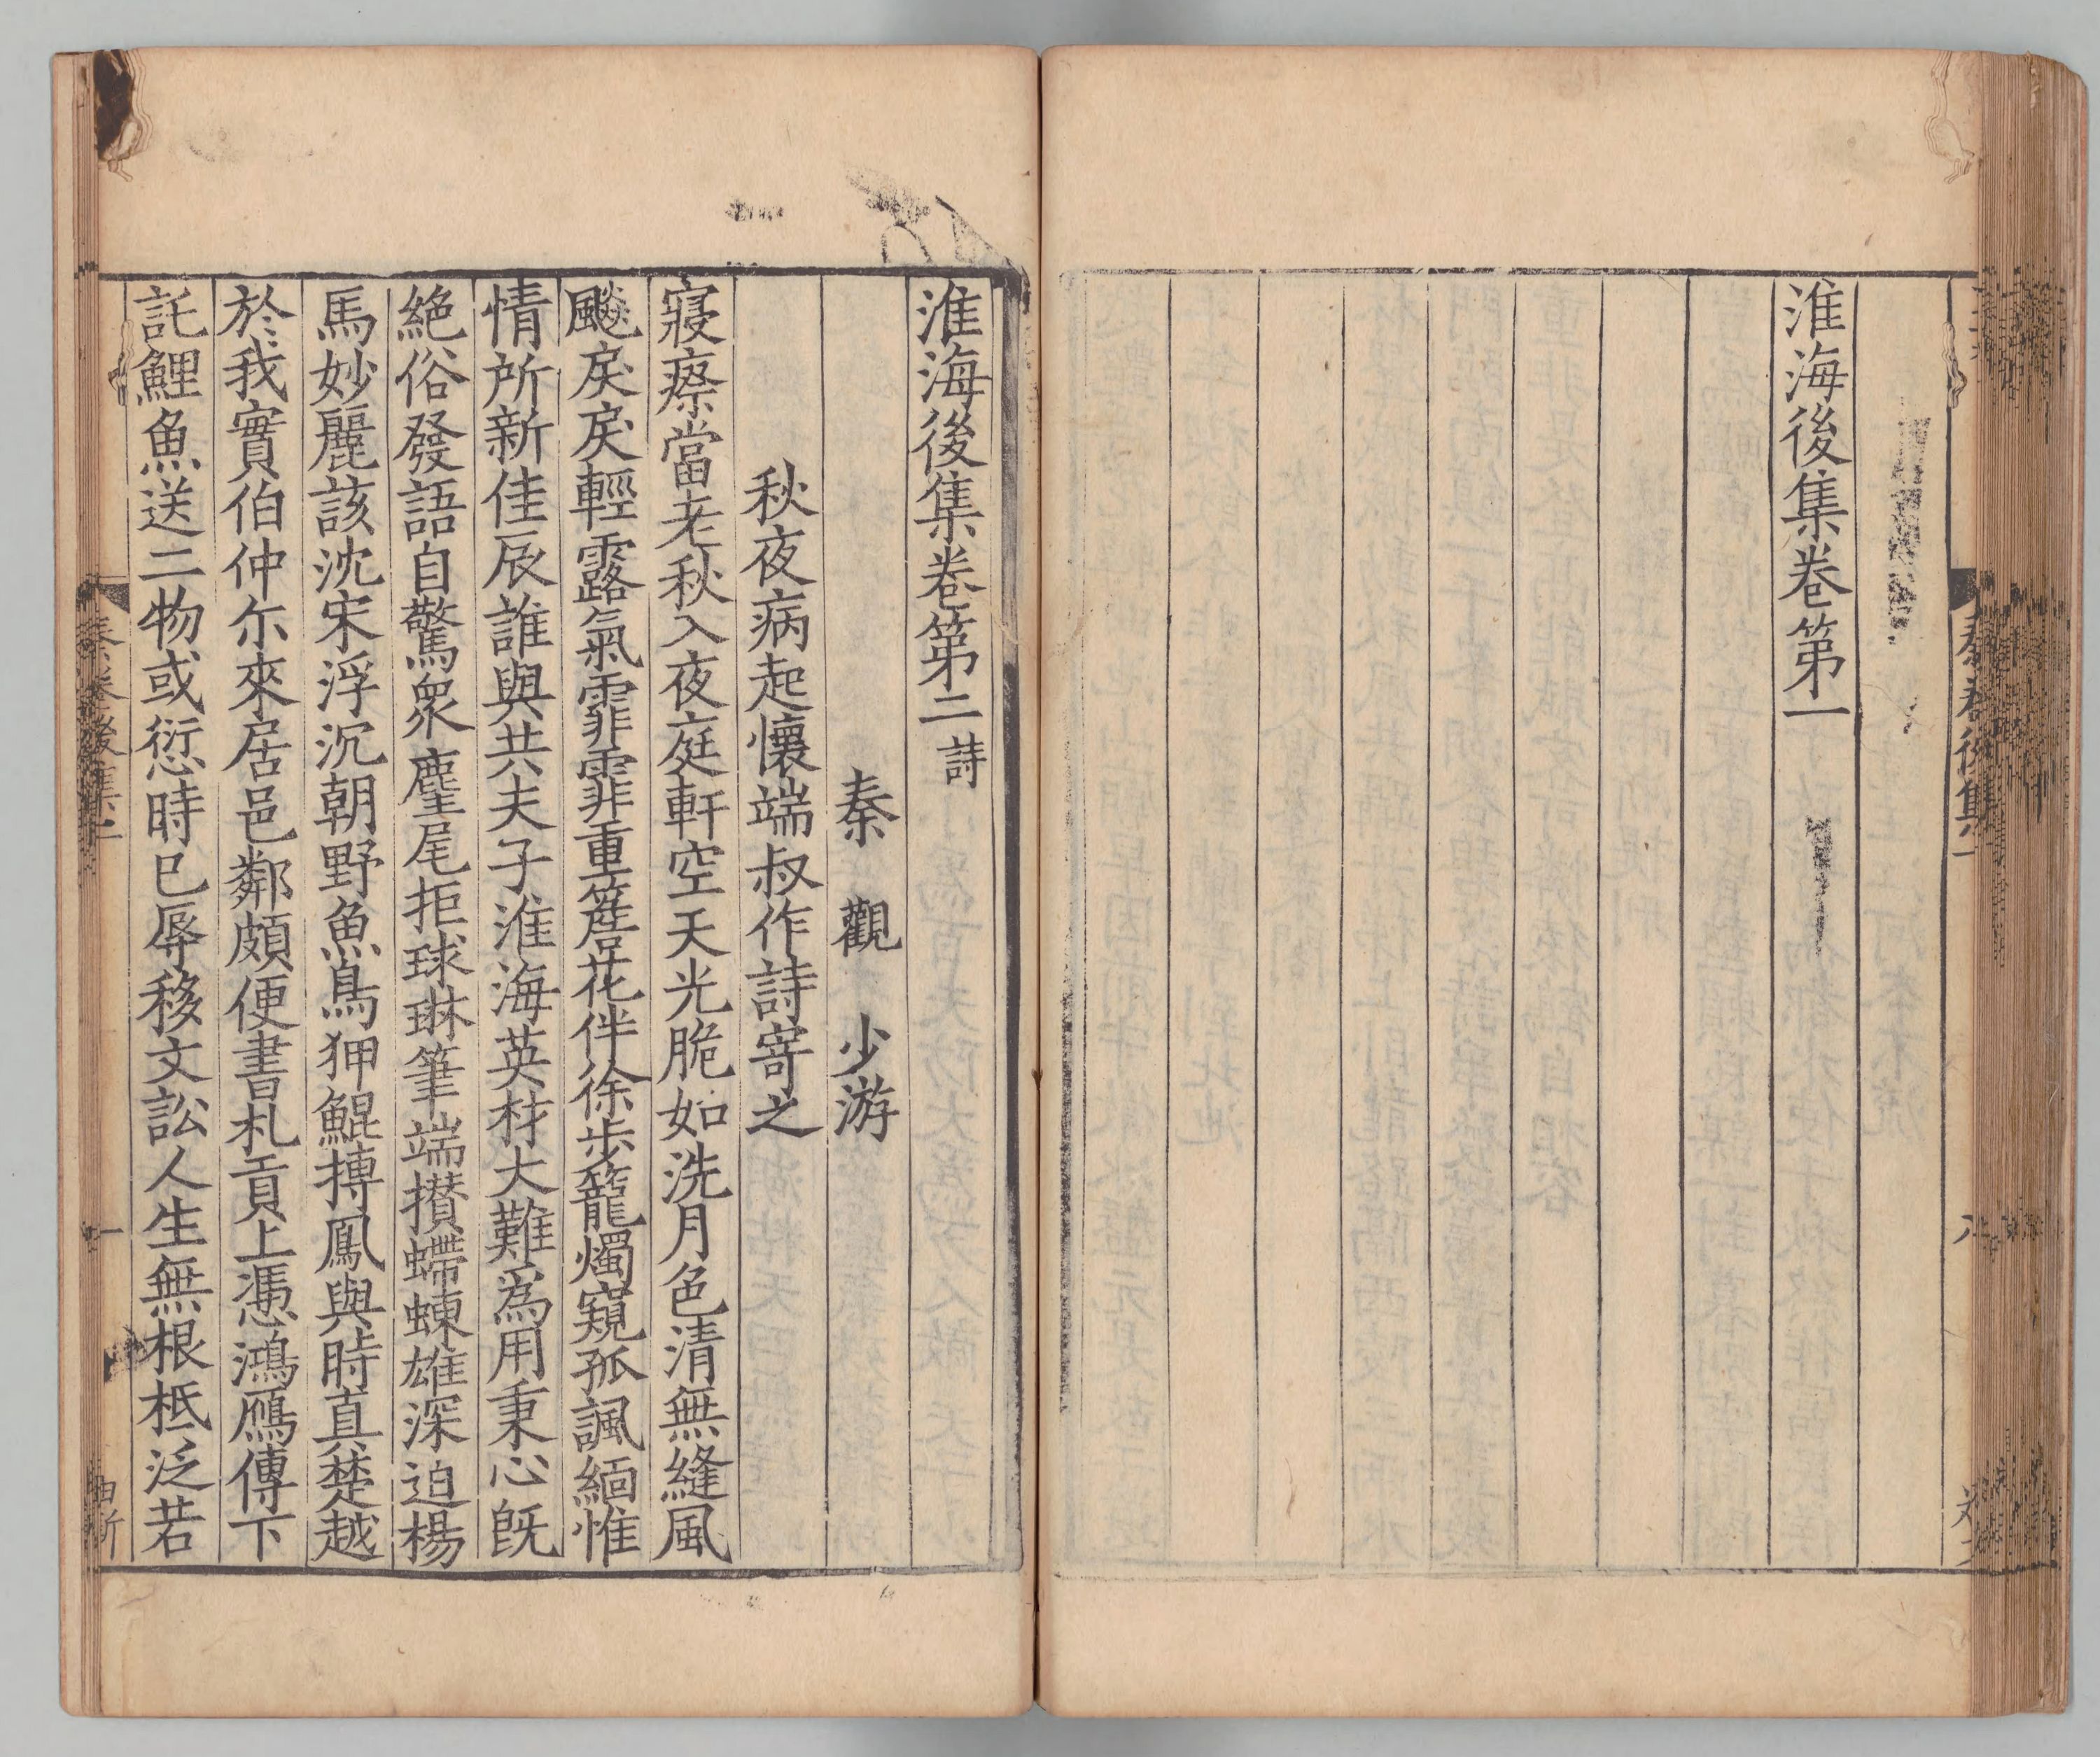 淮海後集卷第一
淮海後集卷第二 詩
秦 觀 少游
秋夜病起懷端叔作詩寄之
寢瘵當老秋入夜庭軒空天光脆如洗月色清無縫風
飈戾戾輕露氣霏霏重簷花伴徐步籠燭窺孤諷緬惟
情所新佳辰誰與共夫子淮海英材大難爲用秉心旣
絶俗發語自驚衆麈尾拒球琳筆端攢螮蝀雄深迫楊
馬妙麗該沈宋浮沉朝野魚鳥狎鯤摶鳳與時真楚越
於我實伯仲尒來居邑鄰頗便書札貢上憑鴻鴈傳下
託鯉魚送二物或愆時已辱移文訟人生無根柢泛若
秦卷後集二
一